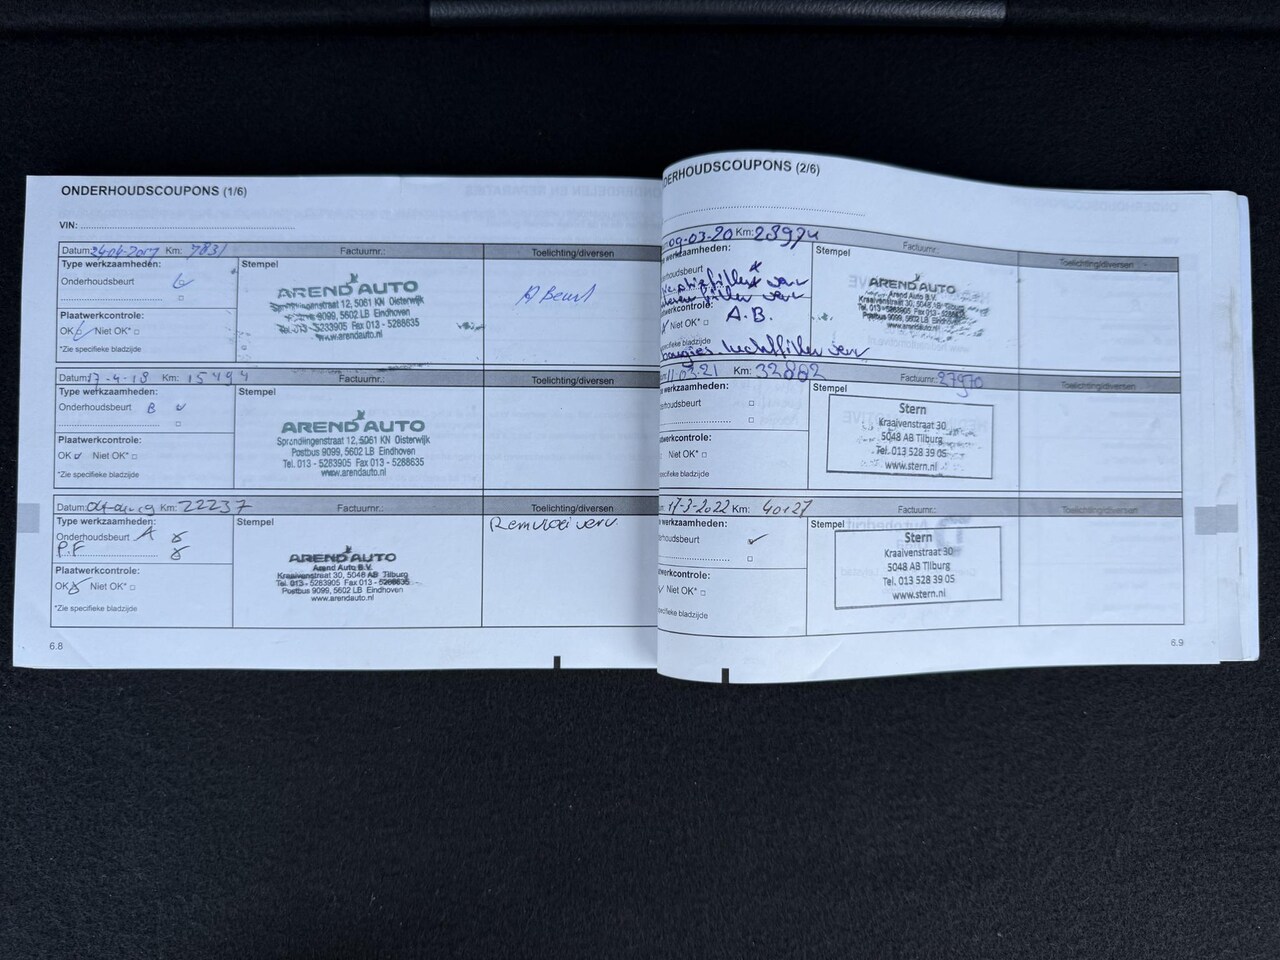 ONDERHOUDSCOUPONS (1/6)
VIN:
Datum: 24-04-2017 Km: 7831 Factuurnr.: Toelichting/diversen
Type werkzaamheden: Stempel
Onderhoudsbeurt
A Beurt
AREND AUTO
Sprendlingenstraat 12, 5061 KN Oisterwijk
Postbus 9099, 5602 LB Eindhoven
Tel. 013 - 5283905 Fax 013 - 5288635
www.arendauto.nl
Plaatwerkcontrole:
OK Niet OK*
*Zie specifieke bladzijde
Datum: 17-4-18 Km: 15494 Factuurnr.: Toelichting/diversen
Type werkzaamheden: Stempel
Onderhoudsbeurt B
AREND AUTO
Sprendlingenstraat 12, 5061 KN Oisterwijk
Postbus 9099, 5602 LB Eindhoven
Tel. 013 - 5283905 Fax 013 - 5288635
www.arendauto.nl
Plaatwerkcontrole:
OK Niet OK*
*Zie specifieke bladzijde
Datum: 04-04-19 Km: 22237 Factuurnr.: Toelichting/diversen
Type werkzaamheden: Stempel
Remvloei verv
Onderhoudsbeurt A
P.F
AREND AUTO
Arend Auto B.V.
Kraaivenstraat 30, 5048 AB Tilburg
Tel. 013 - 5283905 Fax 013 - 5288635
Postbus 9099, 5602 LB Eindhoven
www.arendauto.nl
Plaatwerkcontrole:
OK Niet OK*
*Zie specifieke bladzijde
6.8
DERHOUDSCOUPONS (2/6)
09-03-20 Km: 28974 Factuurnr.: Toelichting/diversen
werkzaamheden: Stempel
erhoudsbeurt
verv
verv
controle: A.B.
Niet OK*
specifieke bladzijde
bougies. luchtfilter verv
AREND AUTO
Arend Auto B.V.
Kraaivenstraat 30, 5048 AB
Postbus 9099, 5602 LB Eindhoven
11-03-21 Km: 32882 Factuurnr.: 27970 Toelichting/diversen
werkzaamheden: Stempel
derhoudsbeurt
Stern
Kraaivenstraat 30
5048 AB Tilburg
Tel. 013 528 39 05
www.stern.nl
Plaatwerkcontrole:
Niet OK*
specifieke bladzijde
17-3-2022 Km: 40127 Factuurnr.: Toelichting/diversen
werkzaamheden: Stempel
derhoudsbeurt
Stern
Kraaivenstraat 30
5048 AB Tilburg
Tel. 013 528 39 05
www.stern.nl
Plaatwerkcontrole:
Niet OK*
specifieke bladzijde
6.9